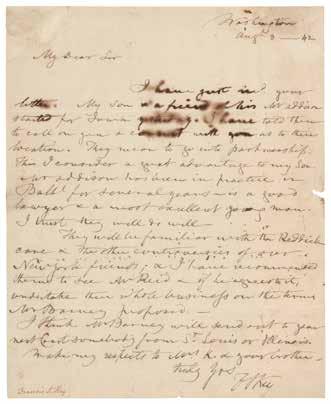 Washington
Aug 3 — 42
My Dear Sir
I have just recd your
letter. My son & a friend of his Mr Addison
started for Iowa yesterday. I have told them
to call on you & consult with you as to their
location. They mean to go into partnership.
This I consider a great advantage to my Son
Mr Addison has been in practice in
Balt for several years — is a good
lawyer & a most excellent young man.
I trust they will do well
They will be familiar with the Reddick
case & the other controversies of our
New York friends, & I have recommended
them to see Mr Reid & if he agrees to it,
undertake their whole business on the terms
Mr Barney proposed —
I think Mr Barney will send out to you
next somebody from St. Louis or Illinois.
Make my respects to Mrs R & your brother
Truly Yrs
F S Key
Francis S. Key